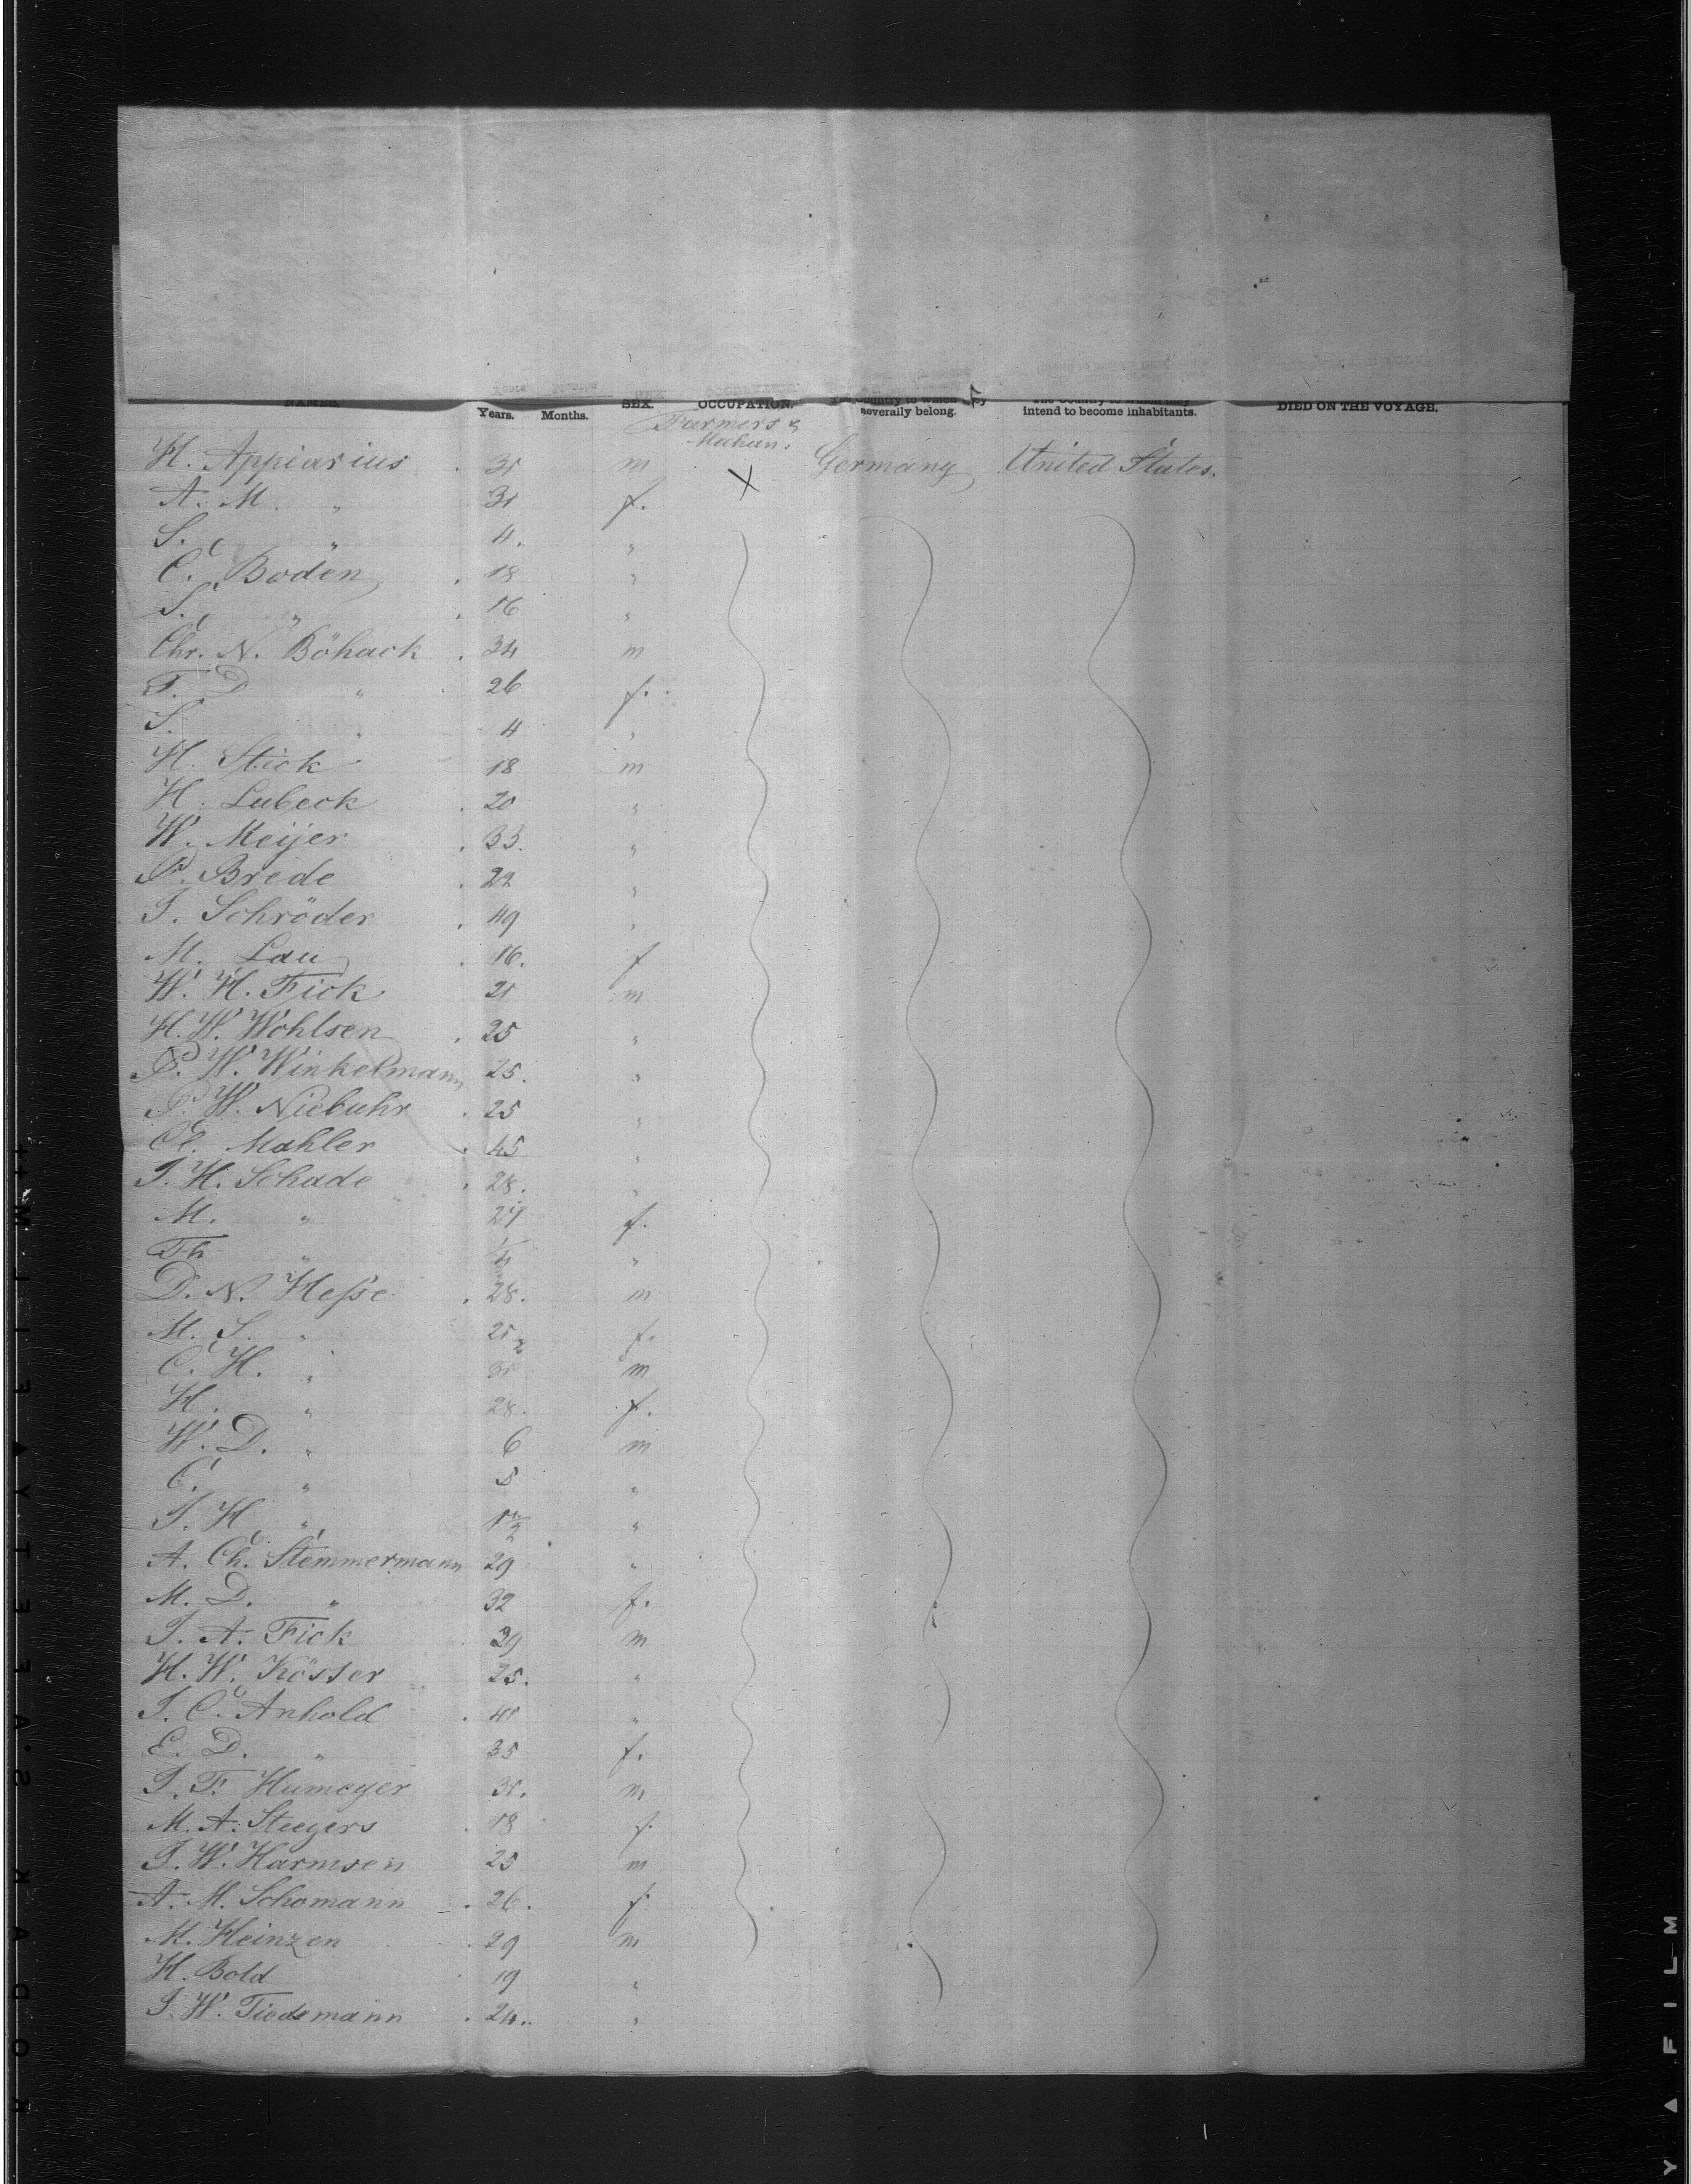 NAMES. Years. Months. SEX. OCCUPATION. The Country to which they severally belong. The Country to which they intend to become inhabitants. DIED ON THE VOYAGE.
Farmers &
Mechan.
H. Appiarius . 31 m Germany United States.
A. M. " 31 f.
S. " 4. "
C. Boden . 18 "
S. " . 16 "
Chr. N. Böhack . 34 m
F. D " 26 f.
S. " 4 "
H. Stick 18 m
H. Lubeck . 20 "
W. Meijer . 33. "
P. Brede . 22 "
J. Schröder . 49 "
M. Lau . 16. f
W. H. Fick 21 m
H. W. Wohlsen . 25 "
P. W. Winkelmann 25. "
P. W. Niebuhr . 25 "
Cl. Mahler . 45 "
J. H. Schade . 28. "
M. " 24 f.
Th " 1/4 "
D. N. Heſse . 28. m
M. S. " 21 f.
C. H. " 31 m
H. " 28. f.
W. D. " 6 m
C. " 5 "
J. H " 1 1/2 "
A. Ch. Stemmermann 29 "
M. D. " 32 f.
J. A. Fick 29 m
H. W. Kösser 25. "
J. C. Anhold . 41 "
E. D. " 35 f.
J. F. Humeyer 31. m
M. A. Steegers . 18 f.
J. W. Harmsen 25 m
A. M. Schomann . 26. f.
M. Heinzen . 29 m
H. Bold 19 "
J. W. Tiedemann . 24. "